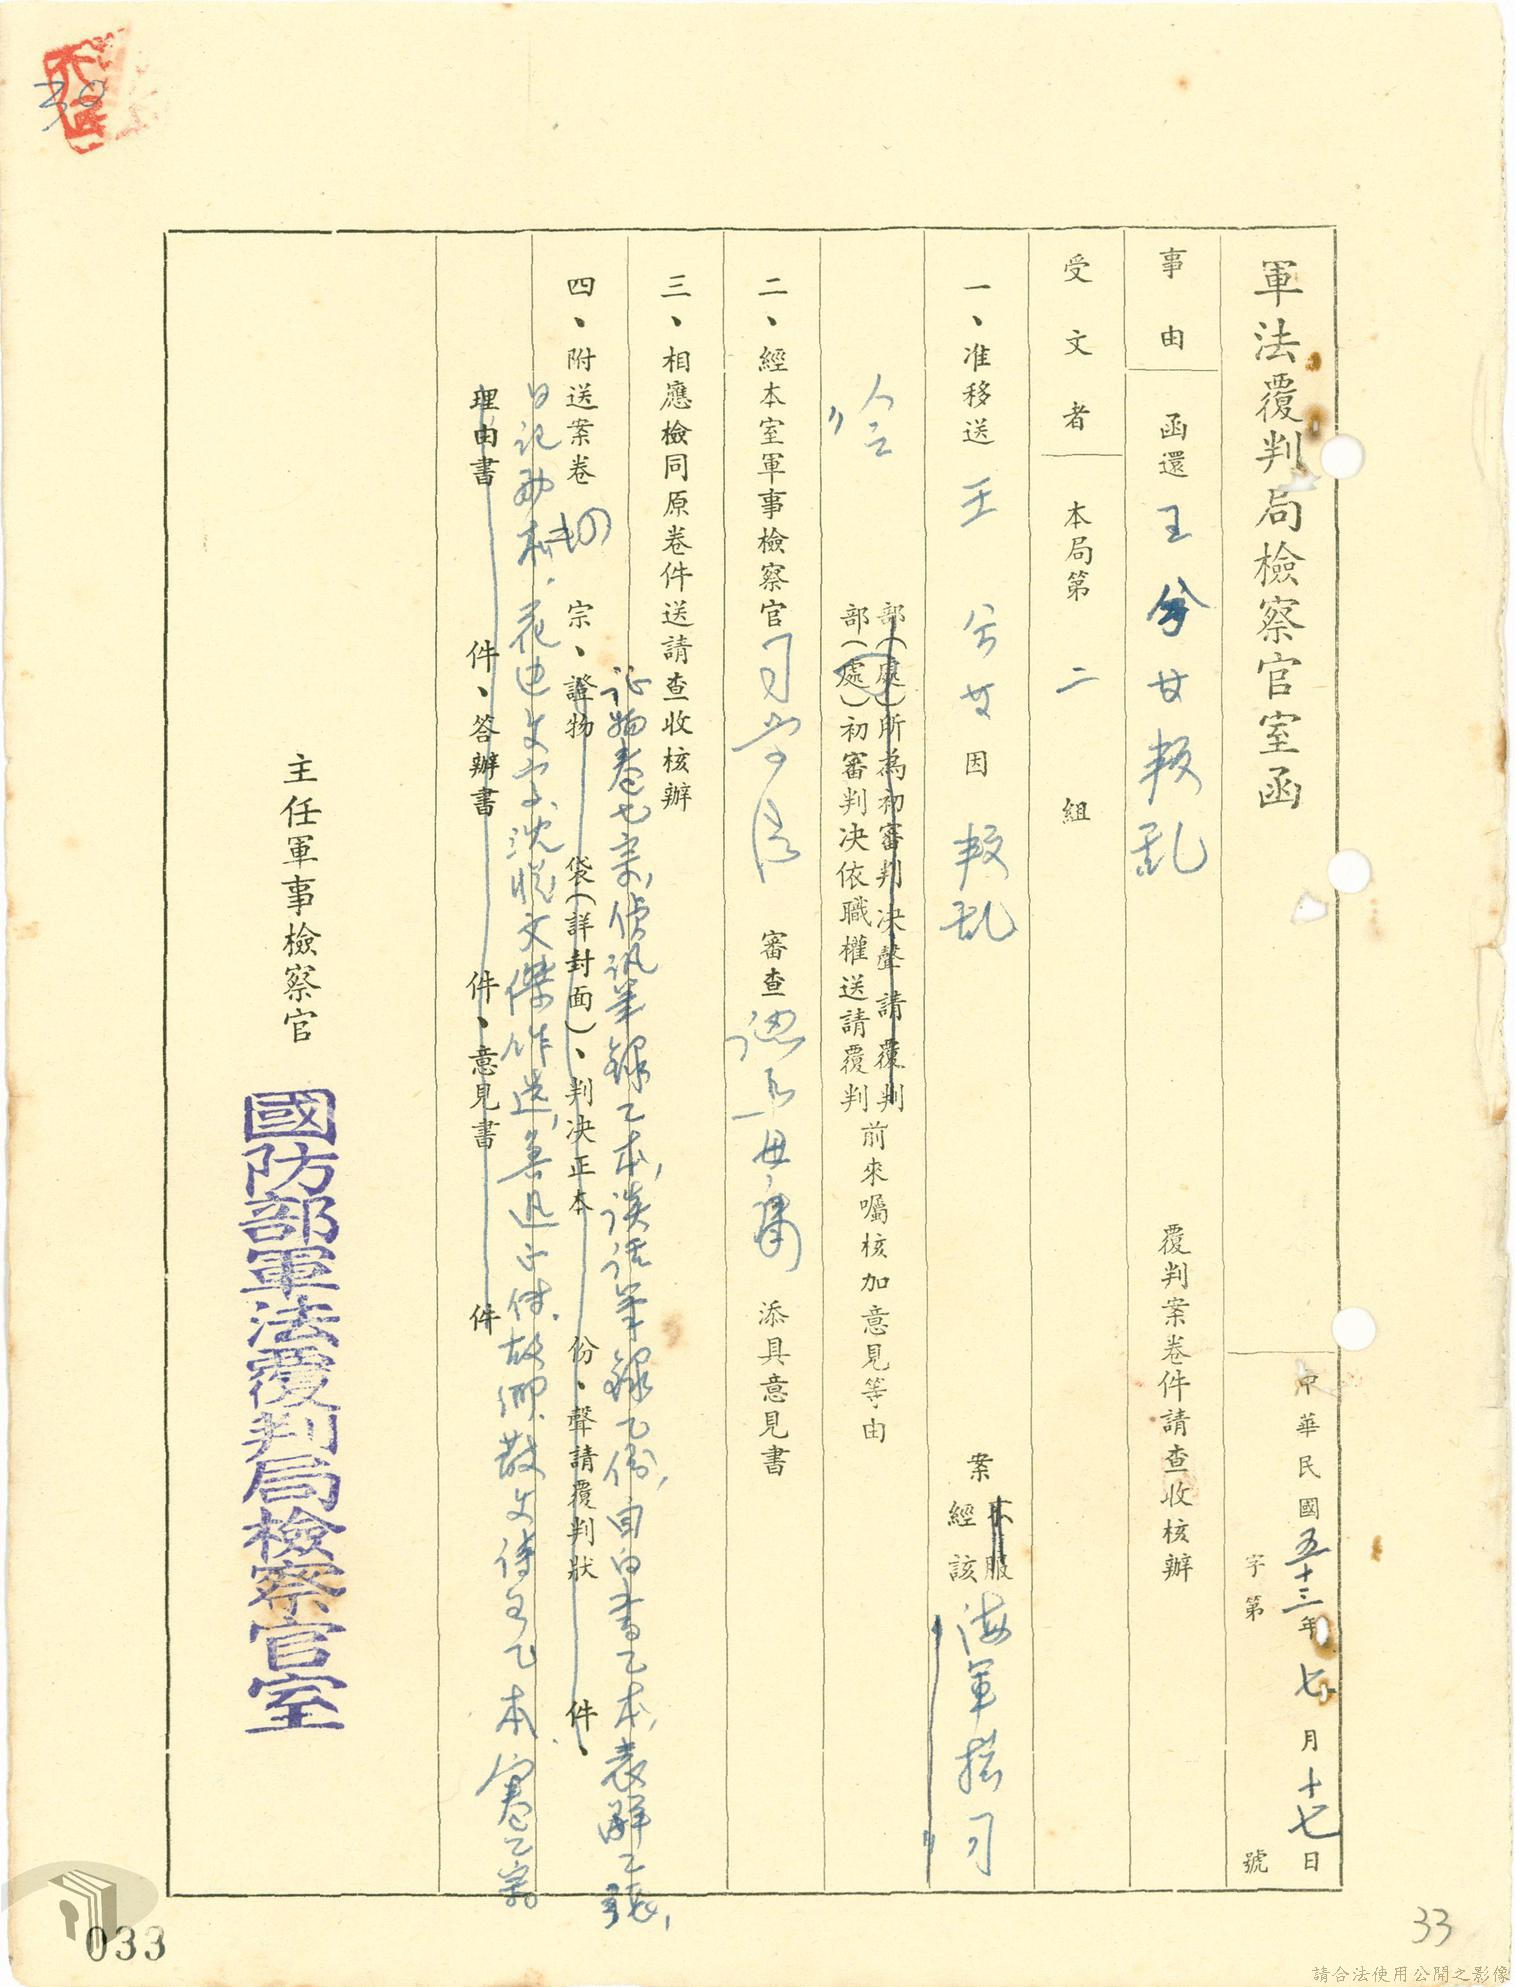 軍法覆判局檢察官室函
中華民國五十三年七月十七日
字第 號
事由 函還王兮廿叛亂 覆判案卷件請查收核辦
受文者 本局第二組
一、准移送 王兮廿因叛乱 案不服
經該海軍總司
令
部(處)所為初審判決聲請覆判
部(處)初審判決依職權送請覆判
前來囑核加意見等由
二、經本室軍事檢察官 審查認 毋庸添具意見書
三、相應檢同原卷件送請查收核辦
四、附送案卷 宗、證物 袋(詳封面)、判決正本 份、聲請覆判狀 件、
理由書 件、答辯書 件、意見書 件
证物卷七宗,偵訊筆錄乙本,談話筆錄乙份,自白書乙本,表解乙張,
日記 花边文字、沈從文傑作选、魯迅 故鄉、散文 乙本、 卷乙宗。
主任軍事檢察官
國防部軍法覆判局檢察官室
30
33
033
請合法使用公開之影像